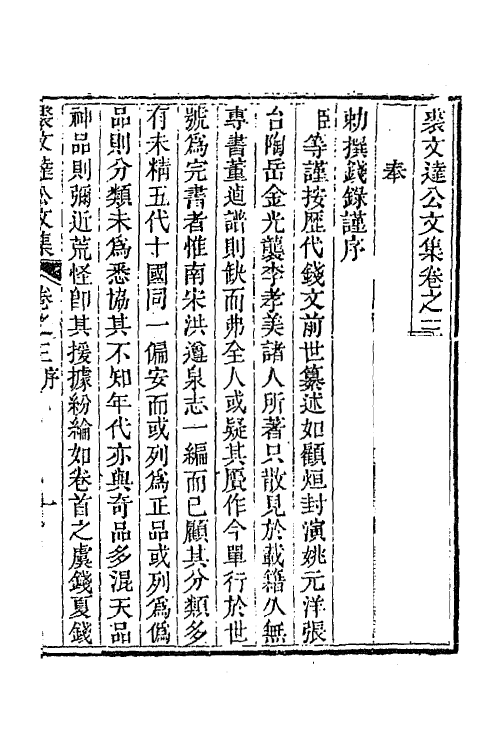 裘文達公文集卷之三
奉
勅撰錢錄謹序
臣等謹按歴代錢文前世纂述如顧烜封演姚元泽張
台陶岳金光襲李孝美諸人所著只散見於載籍久無
專書董逌譜則缺而弗全人或疑其贋作今單行於世
號為完書者惟南宋洪遵泉志一編而已顧其分類多
有未精五代十國同一偏安而或列為正品或列為僞
品則分類未為悉協其不知年代亦與奇品多混天品
神品則彌近荒怪卽其援據紛綸如卷首之虞錢夏錢
裘文達公文集 卷之三 序 一